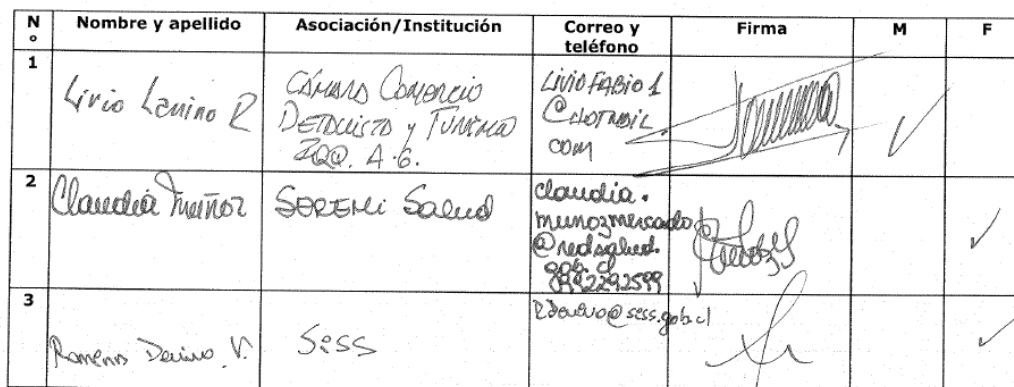 Nº Nombre y apellido Asociación/Institución Correo y teléfono Firma M F
1
Livio Lanino R
CÁMARA COMERCIO
DETALLISTA y TURISMO
IQQ. A.G.
LIVIOFABIO1
@HOTMAIL
COM
2
Claudia Muñoz
SEREMI Salud
claudia.
munozmercado
@redsalud.
gob.cl
3
V.
SESS
@sess.gob.cl